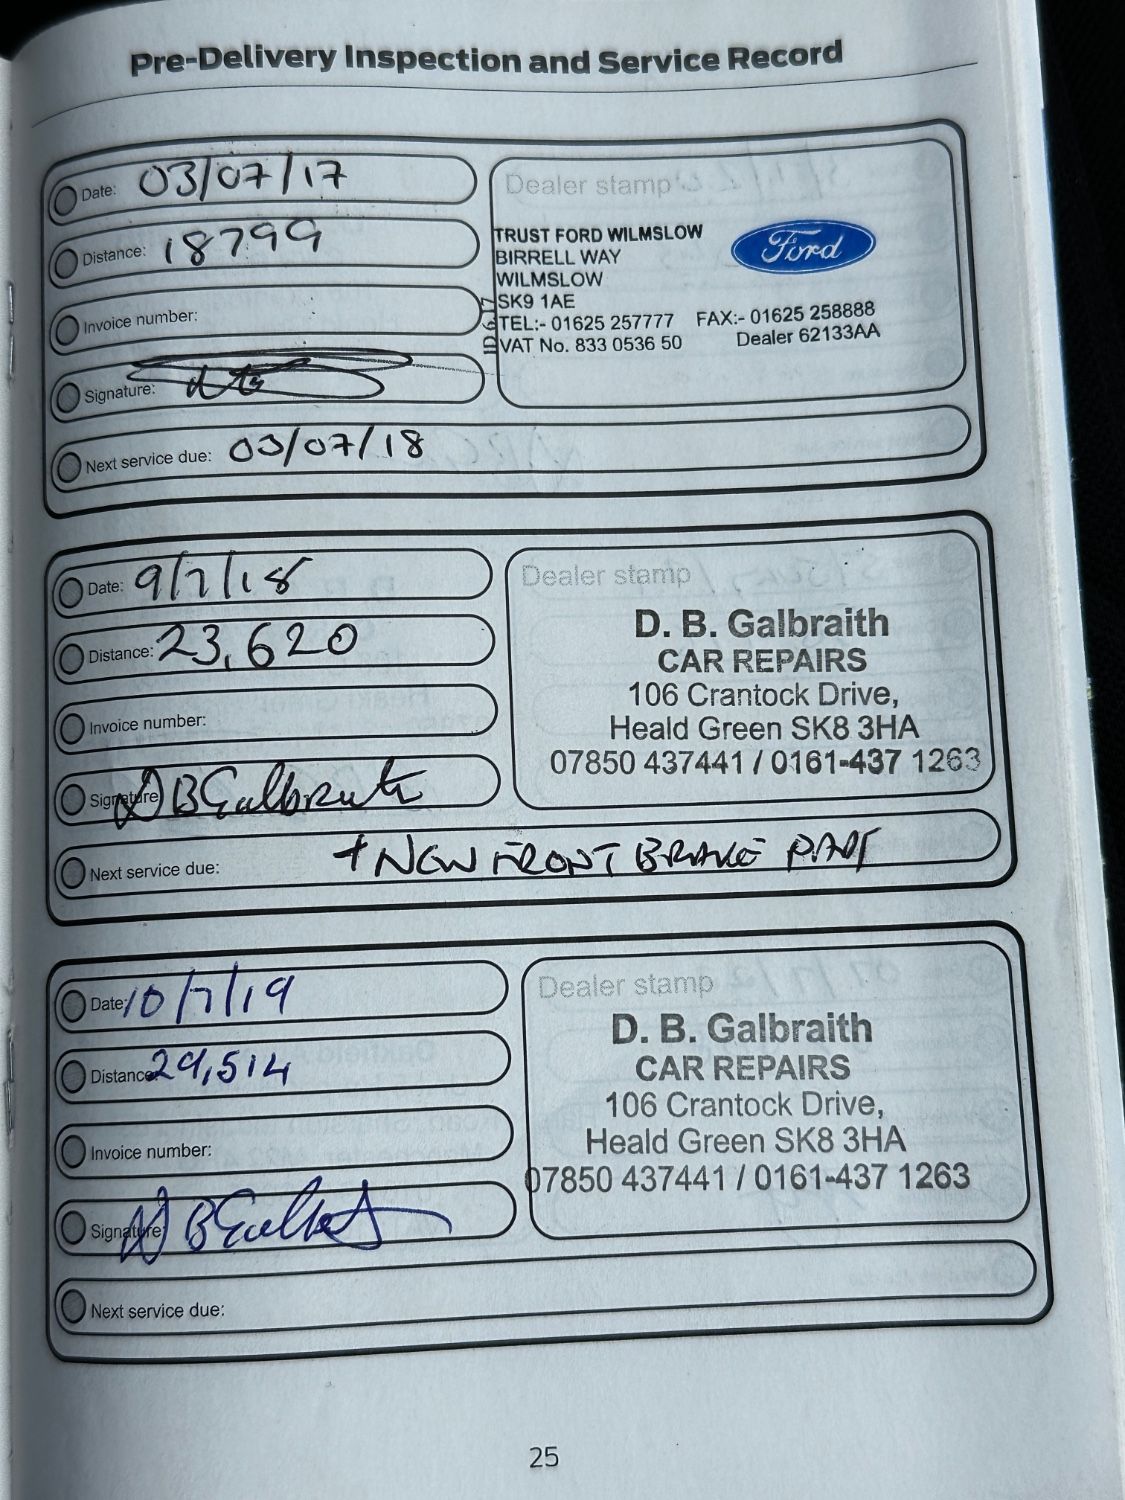 Pre-Delivery Inspection and Service Record
Date: 03/07/17
Distance: 18799
Invoice number:
Signature:
Next service due: 03/07/18
Dealer stamp
TRUST FORD WILMSLOW
BIRRELL WAY
WILMSLOW
SK9 1AE
TEL:- 01625 257777 FAX:- 01625 258888
VAT No. 833 0536 50 Dealer 62133AA
Ford
Date: 9/7/18
Distance: 23,620
Invoice number:
Signature: D B Galbraith
Next service due: + NEW FRONT BRAKE PADS
Dealer stamp
D. B. Galbraith
CAR REPAIRS
106 Crantock Drive,
Heald Green SK8 3HA
07850 437441 / 0161-437 1263
Date: 10/7/19
Distance: 29,514
Invoice number:
Signature: D B Galbraith
Next service due:
Dealer stamp
D. B. Galbraith
CAR REPAIRS
106 Crantock Drive,
Heald Green SK8 3HA
07850 437441 / 0161-437 1263
25